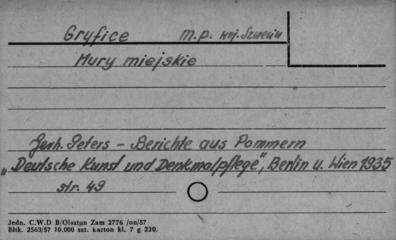 Gryfice m.p. woj. Szczecin
Mury miejskie
Gerh. Peters - Berichte aus Pommern
"Deutsche Kunst und Denkmalpflege", Berlin u. Wien 1935
str. 49
Jedn. C.W.D B/Olsztyn Zam 2776 /on/57
Bibk. 2563/57 10.000 szt. karton kl. 7 g 220.